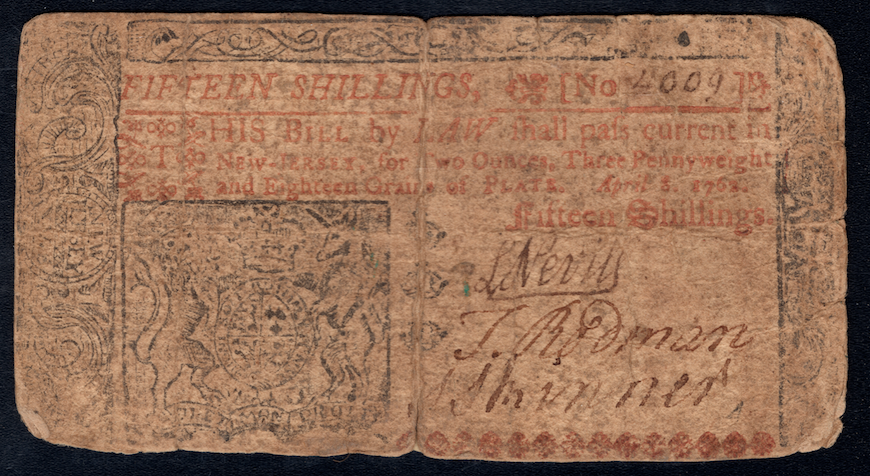 FIFTEEN SHILLINGS, [No 4009]
THIS BILL by LAW shall paſs current in
NEW-JERSEY, for Two Ounces, Three Pennyweight
and Eighteen Grains of PLATE. April 8. 1762.
Fifteen Shillings.
S. Nevill
J. Rodman
Skinner